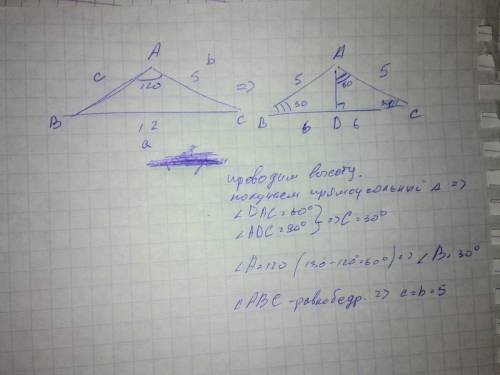 A
c
b
120
5
B
C
12
a
=>
A
5
60
5
B
30
C
6
D
6
проводим высоту.
получаем прямоугольный Δ =>
∠DAC=60°
∠ADC=90° } => C=30°
∠A=120 (180-120=60°) => ∠B=30°
∠ABC - равнобедр. => c=b=5